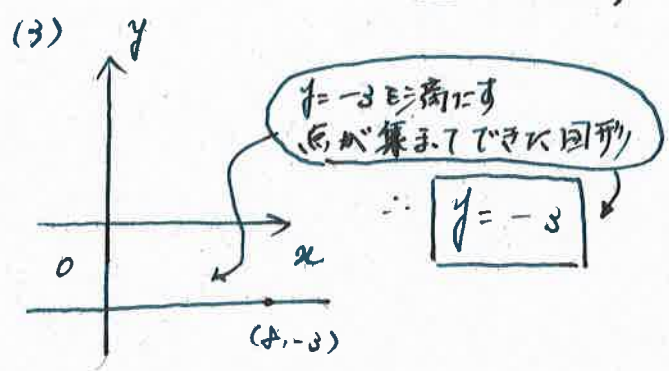 (3)
y
y=-3を満たす
点が集まってできた図形
∴ y = -3
x
0
(8,-3)